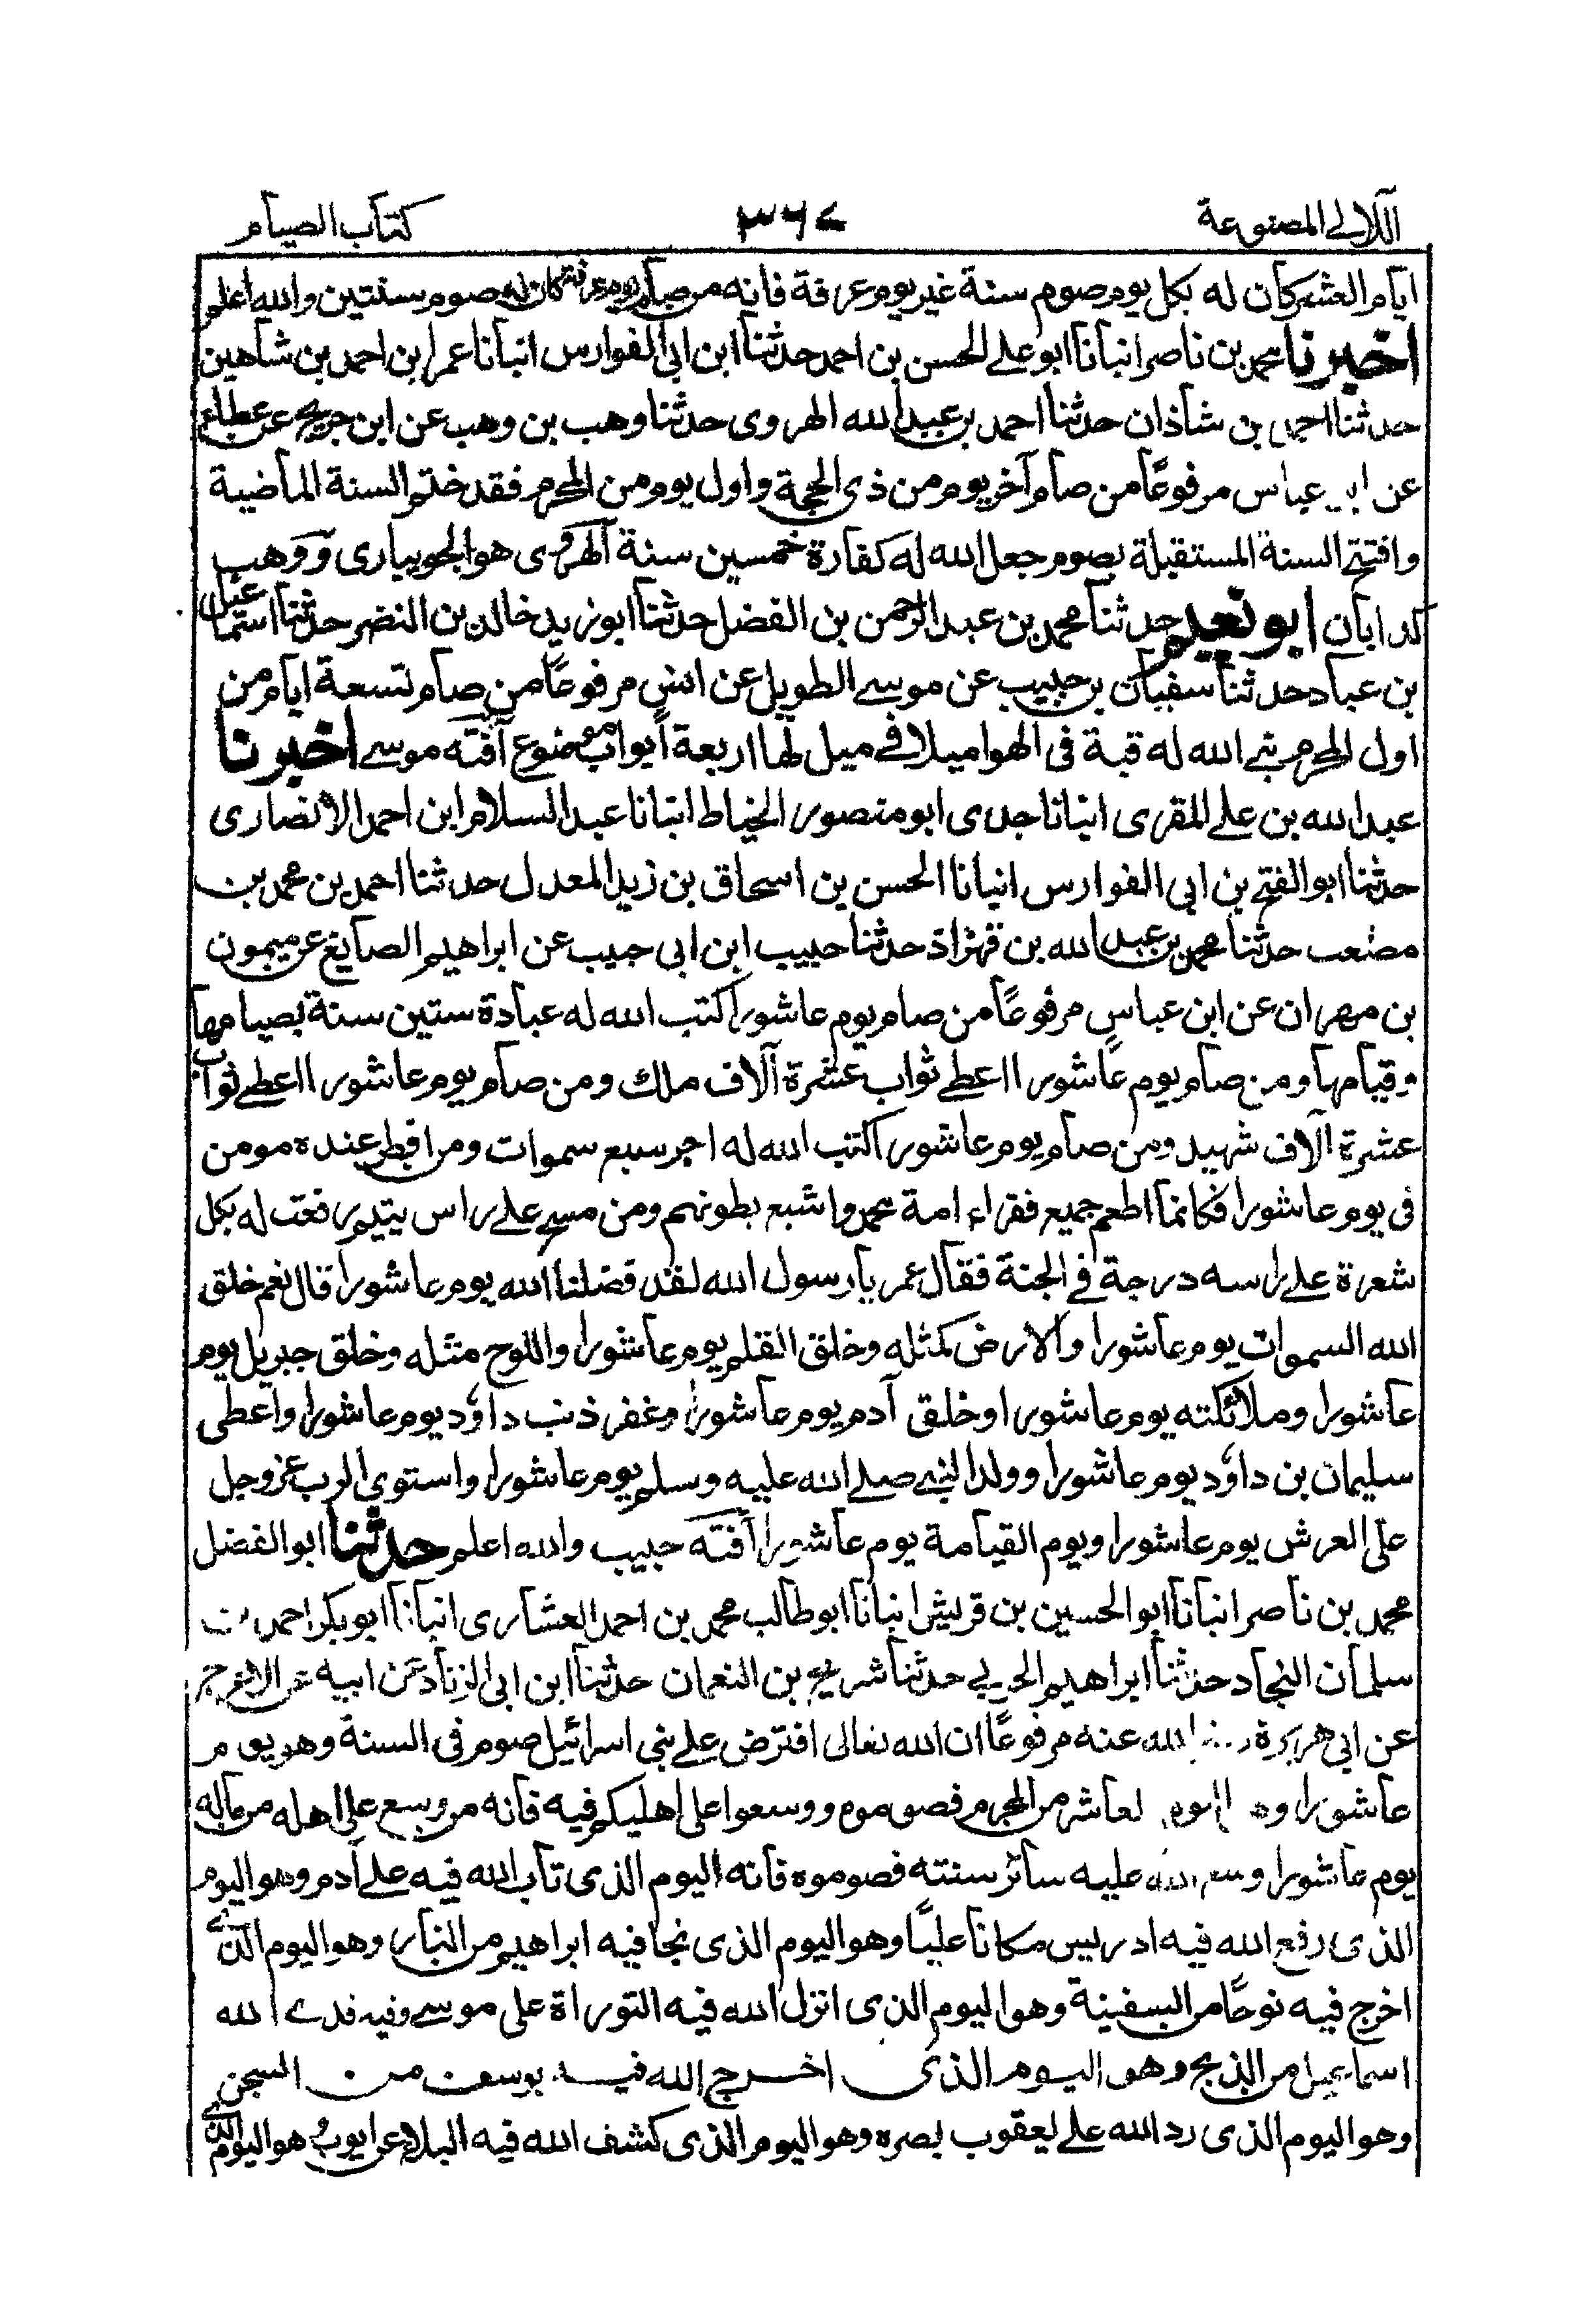 اللآلي المصنوعة ٣٦٤ كتاب الصيام
ايام العشر كان له بكل يوم صوم سنة غير يوم عرفة فانه من صام يوم عرفة كان له صوم سنتين والله اعلم
اخبرنا محمد بن ناصر انبانا ابو علي الحسن بن احمد حدثنا ابن ابي الفوارس انبانا عمر ابن احمد بن شاهين
حدثنا احمد بن شاذان حدثنا احمد بن عبد الله الهروى حدثنا وهب بن وهب عن ابن جريج عن عطاء
عن ابن عباس مرفوعًا من صام آخر يوم من ذى الحجة واول يوم من المحرم فقد ختم السنة الماضية
وافتتح السنة المستقبلة بصوم جعل الله له كفارة خمسين سنة الهروى هو الجويبارى و وهب
كذابان ابو نعيم حدثنا محمد بن عبد الرحمن بن الفضل حدثنا ابو زيد خالد بن النضر حدثنا اسمعيل
بن عباد حدثنا سفيان بن حبيب عن موسى الطويل عن انس مرفوعًا من صام تسعة ايام من
اول المحرم بنى الله له قبة فى الهوا ميلا في ميل لها اربعة ابواب موضوع آفته موسى اخبرنا
عبد الله بن علي المقرى انبانا جدى ابو منصور الخياط انبانا عبد السلام ابن احمد الانصارى
حدثنا ابو الفتح بن ابى الفوارس انبانا الحسن بن اسحاق بن زيد المعدل حدثنا احمد بن محمد بن
مصعب حدثنا محمد بن عبد الله بن قهزاد حدثنا حبيب ابن ابى حبيب عن ابراهيم الصايغ عن ميمون
بن مهران عن ابن عباس مرفوعًا من صام يوم عاشورا كتب الله له عبادة ستين سنة بصيامها
وقيامها ومن صام يوم عاشورا اعطى ثواب عشرة آلاف ملك ومن صام يوم عاشورا اعطى ثواب
عشرة آلاف شهيد ومن صام يوم عاشورا كتب الله له اجر سبع سموات ومن افطر عنده مومن
فى يوم عاشورا فكانما اطعم جميع فقراء امة محمد واشبع بطونهم ومن مسح على راس يتيم رفعت له بكل
شعرة على راسه درجة في الجنة فقال عمر يا رسول الله لقد فضلنا الله يوم عاشورا قال نعم خلق
الله السموات يوم عاشورا والارض كمثله وخلق القلم يوم عاشورا واللوح مثله وخلق جبريل يوم
عاشورا وملائكته يوم عاشورا وخلق آدم يوم عاشورا وغفر ذنب داود يوم عاشورا واعطى
سليمان بن داود يوم عاشورا وولد النبى صلى الله عليه وسلم يوم عاشورا واستوى الرب عز وجل
على العرش يوم عاشورا ويوم القيامة يوم عاشورا آفته حبيب والله اعلم حدثنا ابو الفضل
محمد بن ناصر انبانا ابو الحسين بن قريش انبانا ابو طالب محمد بن احمد العشارى انبانا ابو بكر احمد بن
سلمان النجاد حدثنا ابراهيم الحربي حدثنا شريح بن النعمان حدثنا ابن ابى الزناد عن ابيه عن الاعرج
عن ابى هريرة الله عنه مرفوعًا ان الله تعالى افترض على بنى اسرائيل صوم فى السنة وهو يوم
عاشورا وهو اليوم العاشر من المحرم فصوموم ووسعوا على اهليكم فيه فانه من وسع على اهله من ماله
يوم عاشورا وسع الله عليه سائر سنته فصوموه فانه اليوم الذى تاب الله فيه على آدم وهو اليوم
الذى رفع الله فيه ادريس مكانا عليًا وهو اليوم الذى نجا فيه ابراهيم من النار وهو اليوم الذي
اخرج فيه نوحًا من السفينة وهو اليوم الذى انزل الله فيه التوراة على موسى وفيه فدى الله
اسماعيل من الذبح وهو اليوم الذى اخرج الله فيه يوسف من السجن
وهو اليوم الذى رد الله على يعقوب بصره وهو اليوم الذى كشف الله فيه البلاء عن ايوب وهو اليوم الذي